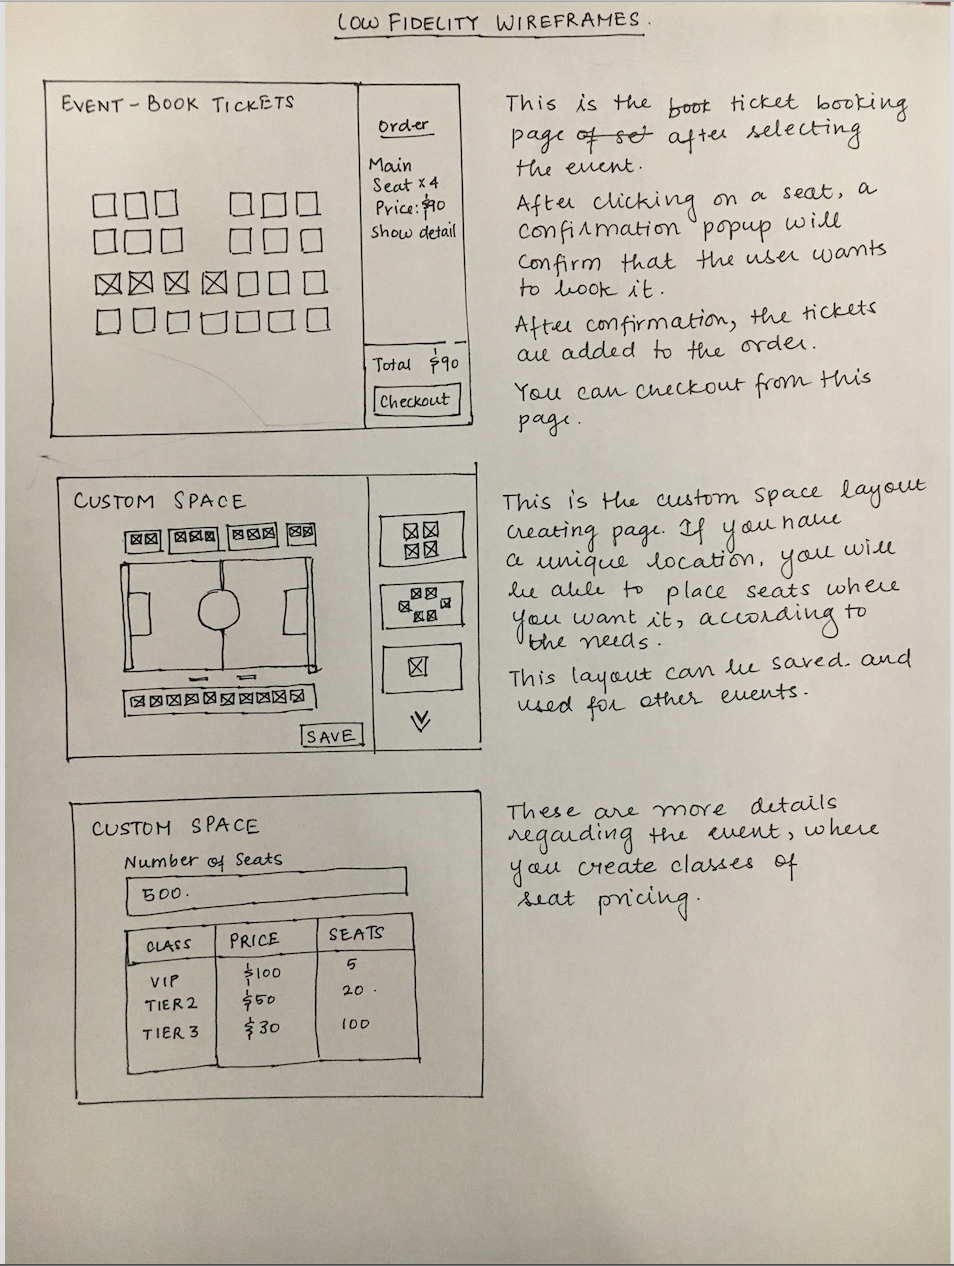 LOW FIDELITY WIREFRAMES.
EVENT - BOOK TICKETS
Order
Main
Seat x 4
Price: $90
Show detail
Total $90
Checkout
This is the book ticket booking
page of set after selecting
the event.
After clicking on a seat, a
confirmation popup will
confirm that the user wants
to book it.
After confirmation, the tickets
are added to the order.
You can checkout from this
page.
CUSTOM SPACE
SAVE
This is the custom space layout
creating page. If you have
a unique location, you will
be able to place seats where
you want it, according to
the needs.
This layout can be saved. and
used for other events.
CUSTOM SPACE
Number of Seats
500.
CLASS PRICE SEATS
VIP $100 5
TIER 2 $50 20
TIER 3 $30 100
These are more details
regarding the event, where
you create classes of
seat pricing.